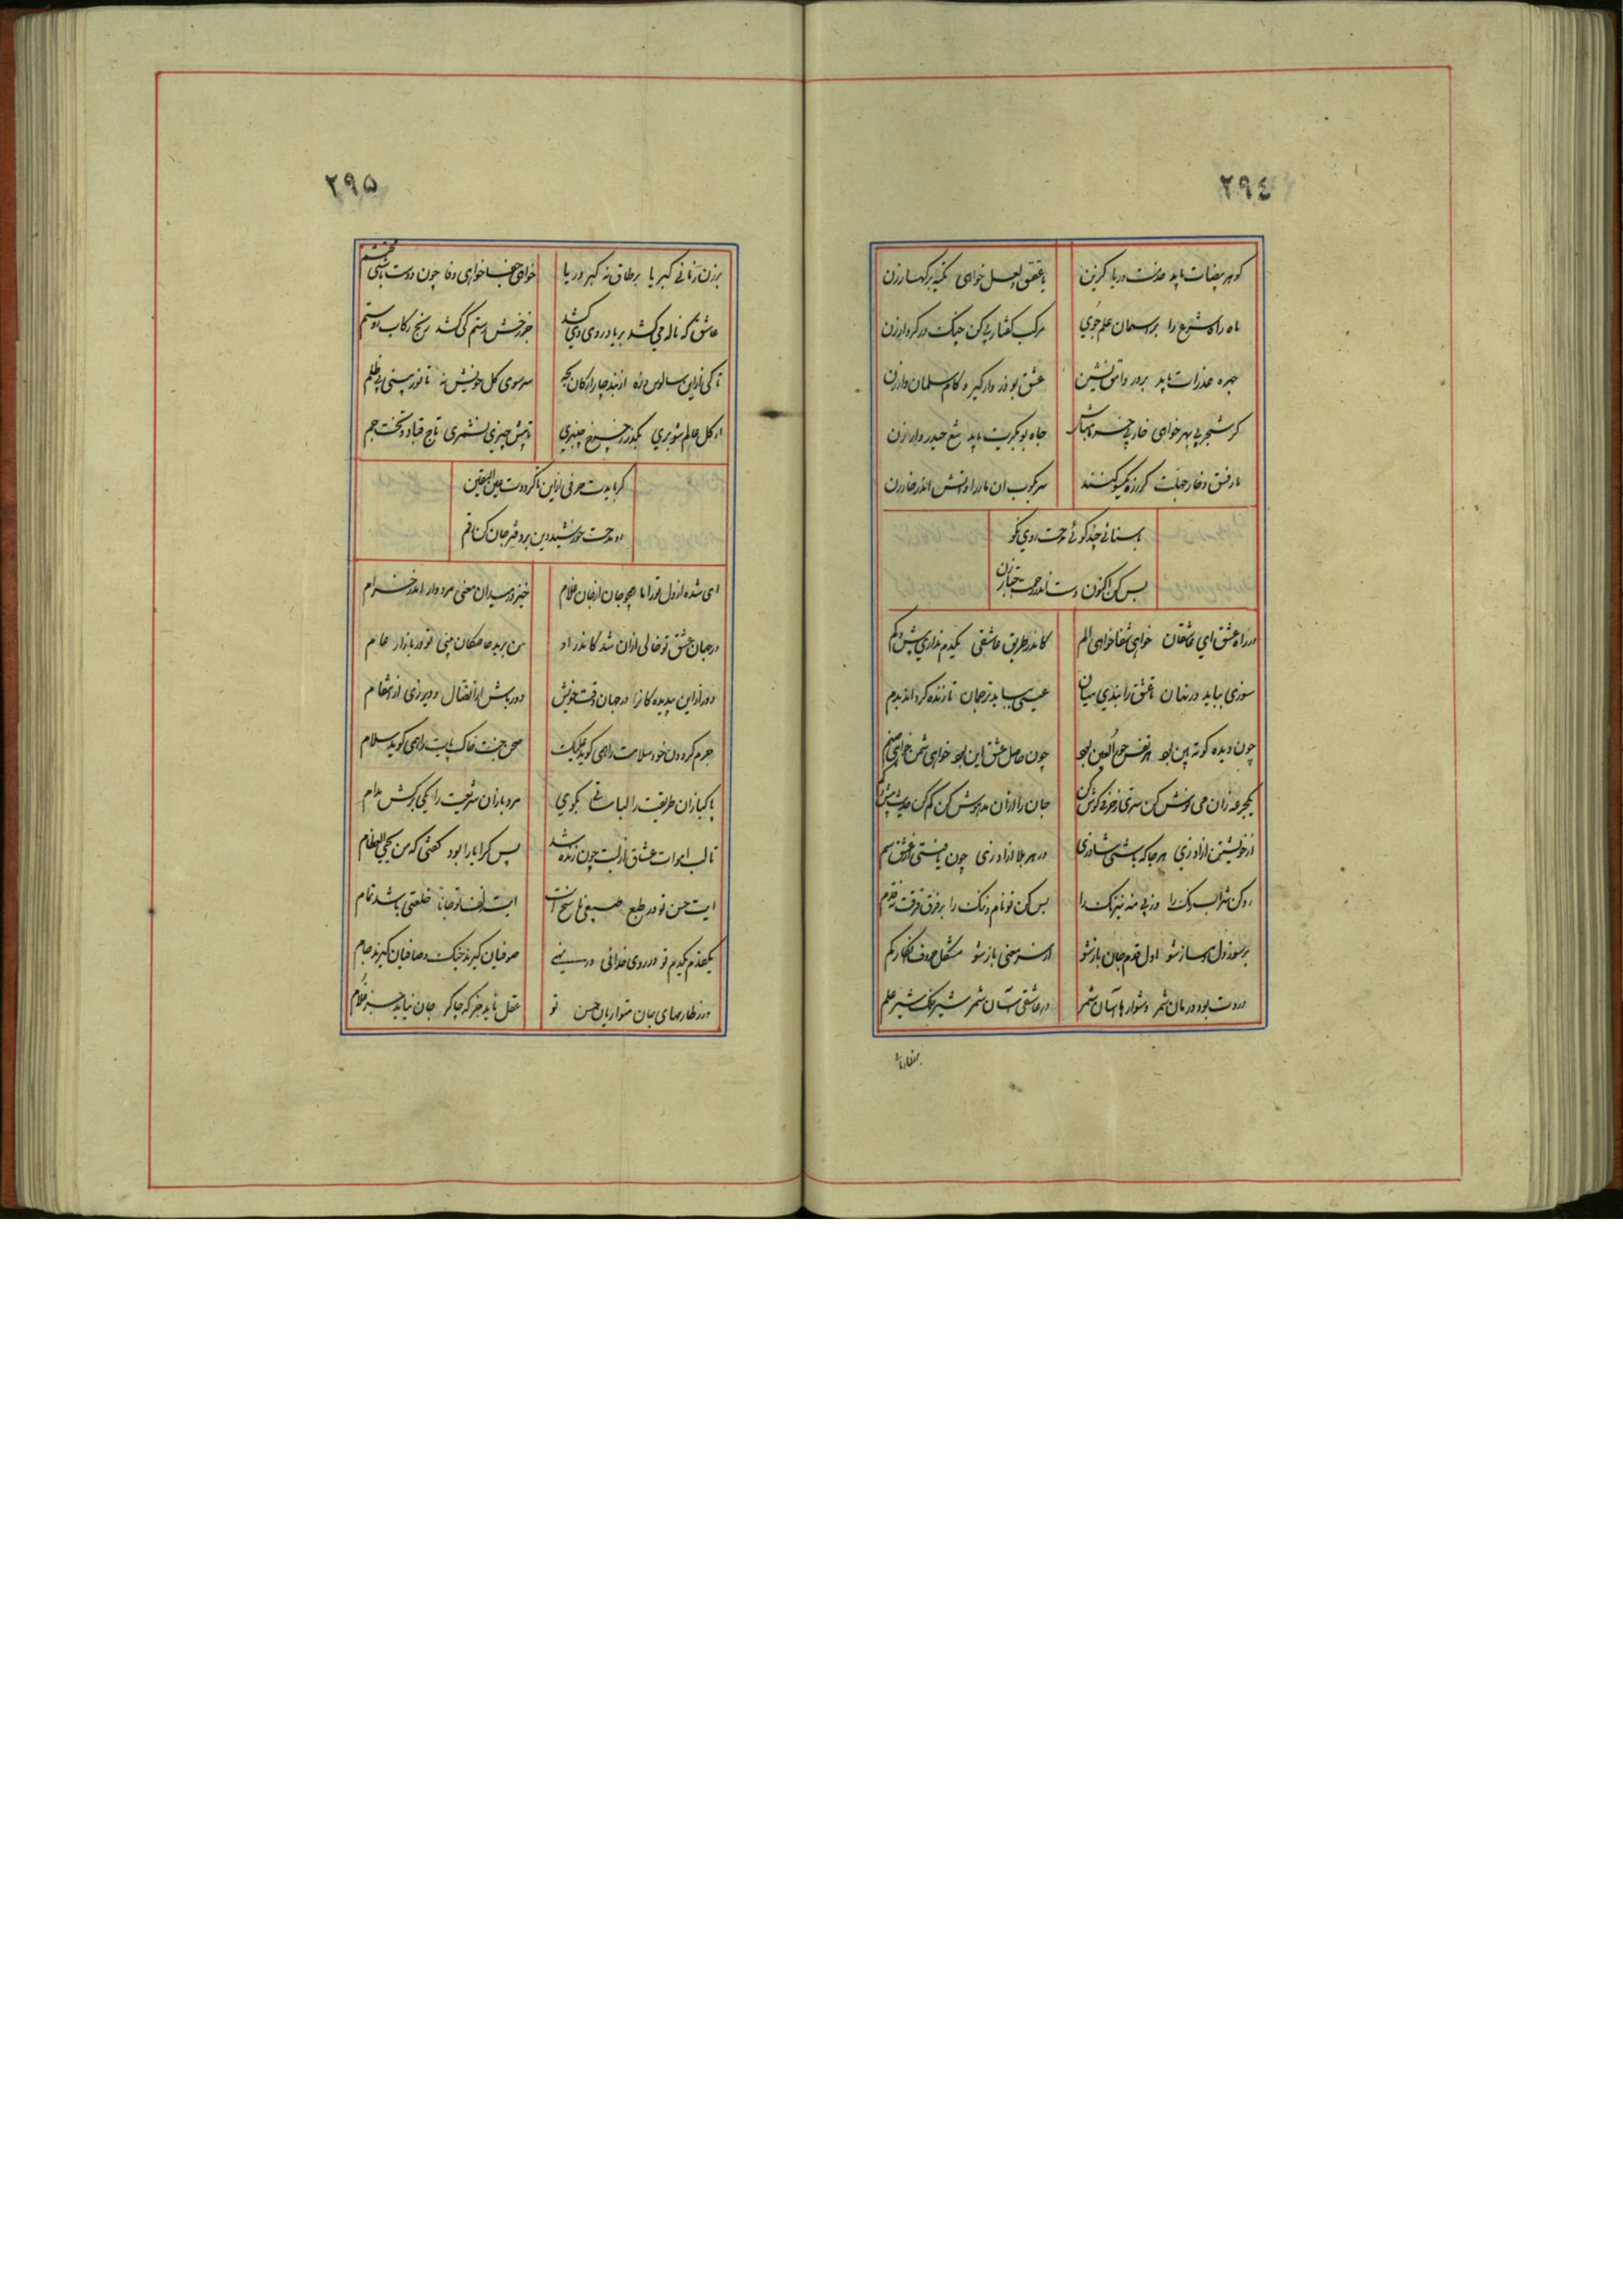 ٢٩٤
گوهر بیضات باید خدمت دریا گزین یا عقیق و لعل خواهی تکیه بر کهسار زن
ماه راه شرع را بر سمان علم جوی مرکب گفتار پی کن چنگ در کردار زن
چهره عذرات باید بر در وامق نشین عشق بوذر وار گیر و گام سلمان وار زن
گر شجر بی بهر خواهی خار بی خرما مباش جاه بوبکریت باید تیغ حیدر وار زن
مار فسق و خار جهلت گر زره یکسو کنند سر بکوب آن مار را و آتش اندر خار زن
یا سنائی چند گوئی مدحت روی نکو
بس کن اکنون دست اندر رحمت جبار زن
در راه عشق ای عاشقان خواهی شفا خواهی الم کاندر طریق عاشقی یکدم نداری بیش و کم
سوزی بباید در نهان تا عشق را بندی میان عیسی بباید ترجمان تا زنده گرداند بدم
چون دیده کوته بین بود هر نقش حور العین بود چون حاصل عشق این بود خواهی شمن خواهی صنم
یکجرعه زان می نوش کن سری ز حرفی گوش کن جان را از آن مدهوش کن کم کن حدیث بیش و کم
از خویشتن آزاد زی هر جا که باشی شاد زی در هر بلا آزاد زی چون یافتی از عشق سم
رو کن شراب رنگ را وز پی منه نیرنگ را بس کن تو نام و ننگ را بر فرق فرقت نه قدم
بر سوز دل دمساز شو اول قدم جان باز شو از سر معنی باز شو مشکل حروف کم
دردت بود درمان شمر دشوارها آسان شمر در عاشقی آسان شمر شیر شیر علم
٢٩٥
بر زن زمانی کبریا بر طاق نه کبر و ریا خواهی جفا خواهی وفا چون دوست باشی محتشم
عاشق که ناله می کشد بر یاد روی وی کشد جز رخش رستم کی کشد رنج رکاب روستم
تا کی از این سالوس و زه از بند چار ارکان بجه سر سوی کل خویش نه تا نور بینی بی ظلم
از کل عالم شو بری بگذر ز چرخ چنبری تا پیش چیزی نشمری تاج قباد و تخت جم
گر بایدت حرفی از این تا گرددت عین الیقین
رو مدحت خورشید دین بر دفتر جان کن رقم
ای شده از دل تو را ما همچو جان از جان غلام خیز و در میدان معنی مردوار اندر خرام
در جهان عشق تو خالی از آن شد کاندر او من برید خاصگان بینی تو در بازار عام
دور از این پدیده کانرا در جهان وقت خویش دور باش از انفصال و دیر زی از مقام
جرم گردون خود سلامت راهمی گوید علیک صحن جنت خاک پایت راهمی گوید سلام
پاکبازان طریقت را لباساتی بگوی مردبازان شریعت را یکی برکش مدام
تا لب اموات عشاق از لبت چون زنده شد پس کرا یارا بود گفتی که من یحیی العظام
اینت حسن تو در طبع ضعیفی ناسخ است اینت لطف تو جانا خلعتی باشد تمام
یکقدم یکدم تو در روی خدائی صوفیان گیرند چنگ و صافیان گیرند جام
در نظارهای جان متواریان حسن تو عقل ناید جز که چاکر جان نیاید جز غلام